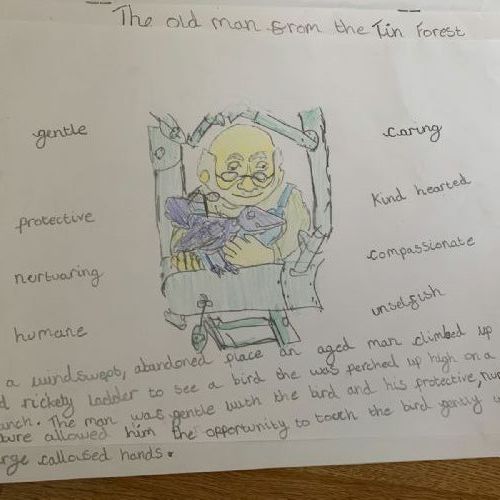 The old man from the Tin Forest
gentle
caring
kind hearted
protective
compassionate
nertuaring
unselfish
humane
a windswept, abandoned place an aged man climbed up
rickety ladder to see a bird she was perched up high on a
The man was gentle with the bird and his protective,
allowed him the opportunity to tooth the bird gently
calloused hands.